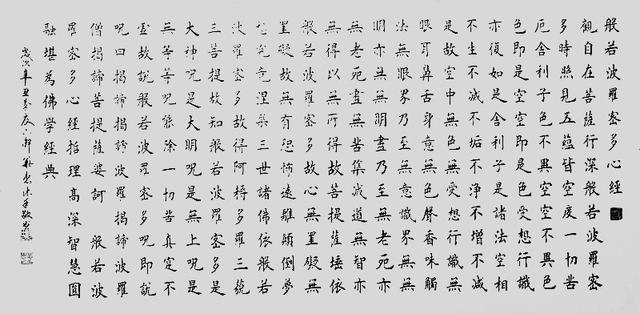 般若波羅密多心經
觀自在菩薩行深般若波羅密
多時照見五蘊皆空度一切苦
厄舍利子色不異空空不異色
色即是空空即是色受想行識
亦復如是舍利子是諸法空相
不生不滅不垢不淨不增不減
是故空中無色無受想行識無
眼耳鼻舌身意無色聲香味觸
法無眼界乃至無意識界無
無明亦無無明盡乃至無老死亦
無老死盡無苦集滅道無智亦
無得以無所得故菩提薩埵依
般若波羅密多故心無罣礙無
罣礙故無有恐怖遠離顛倒夢
想究竟涅槃三世諸佛依般若
波羅密多故得阿耨多羅三藐
三菩提故知般若波羅密多是
大神咒是大明咒是無上咒是
無等等咒能除一切苦真實不
虛故說般若波羅密多咒即說
咒曰揭諦揭諦波羅揭諦波羅
僧揭諦菩提薩婆訶 般若波
羅密多心經哲理高深智慧圓
融堪為佛學經典
歲次辛丑